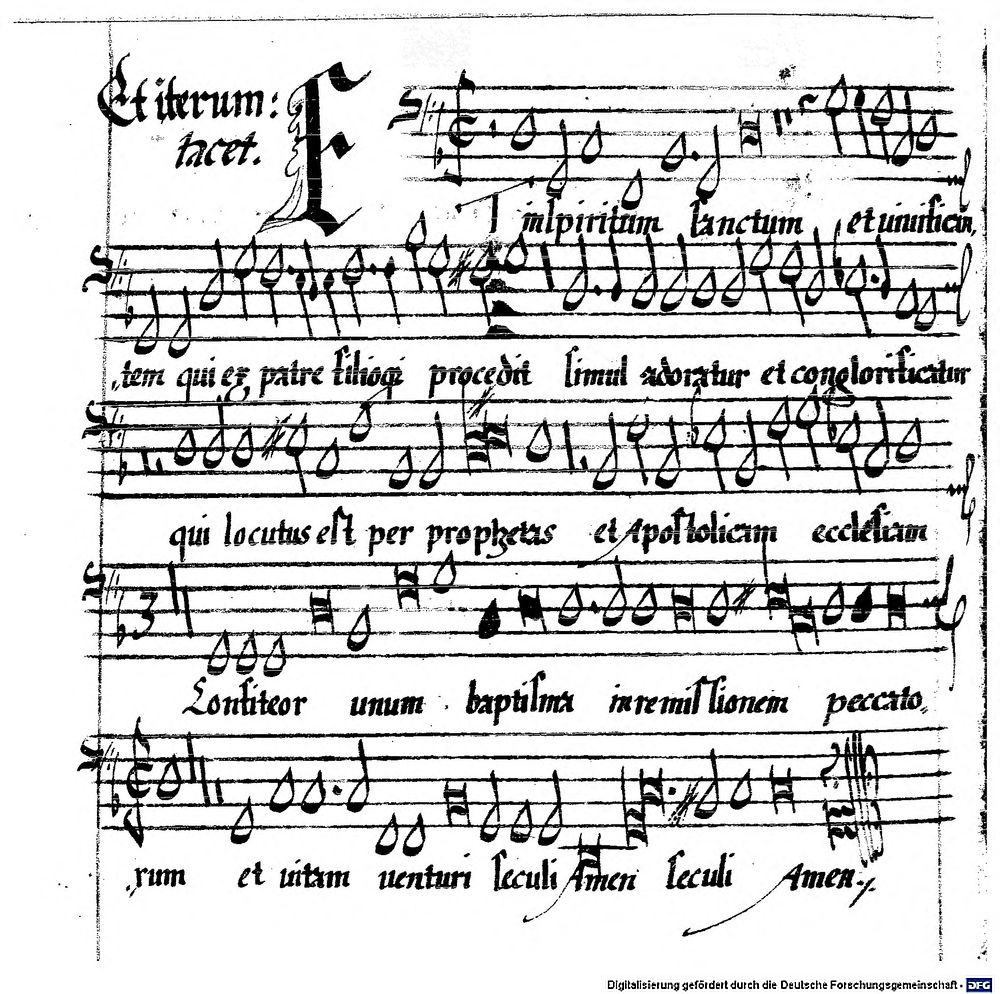 Et iterum:
tacet.
ET inspiritum sanctum et uiuifican,
tem qui ex patre filioqȝ procedit simul adoratur et conglorificatur
qui locutus est per prophetas et Apostolicam ecclesiam
Confiteor unum baptisma in remissionem peccato,
rum et uitam uenturi seculi Amen seculi Amen.
Digitalisierung gefördert durch die Deutsche Forschungsgemeinschaft - DFG